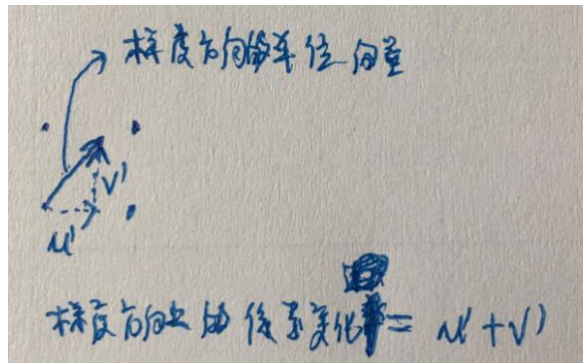 梯度方向的单位向量
v'
u'
梯度方向上的像素变化率= u'+v'